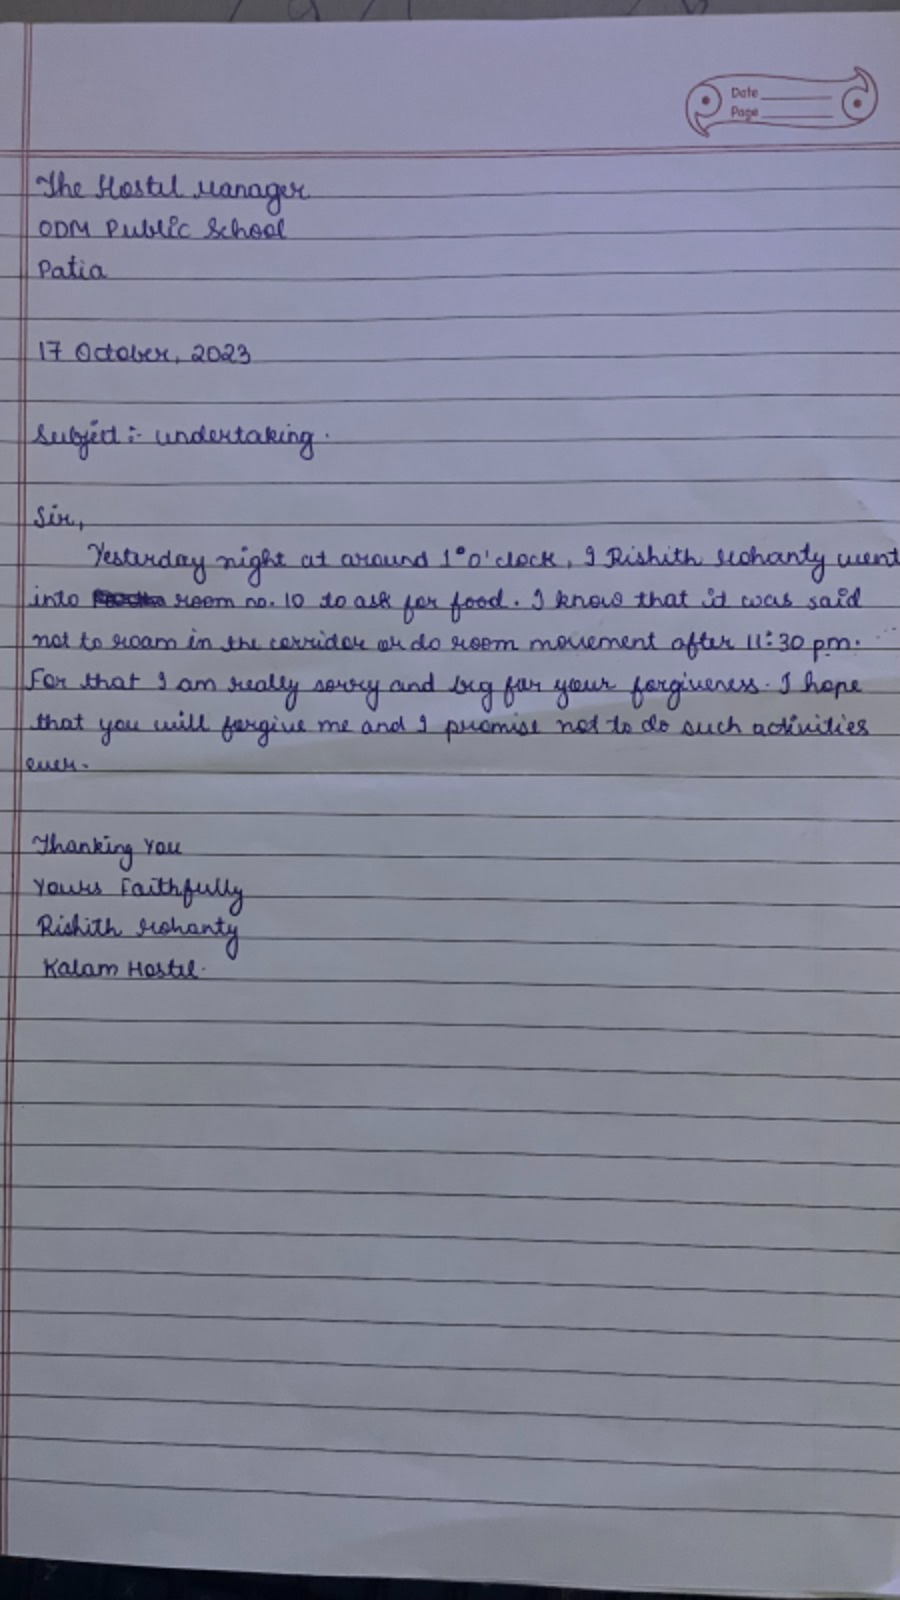 Date
Page
The Hostel Manager
ODM Public School
Patia
17 October, 2023
Subject :- undertaking.
Sir,
Yesterday night at around 1°o'clock, I Rishith Mohanty went
into room no. 10 to ask for food. I know that it was said
not to roam in the corridor or do room movement after 11:30 pm.
For that I am really sorry and beg for your forgiveness. I hope
that you will forgive me and I promise not to do such activities
ever.
Thanking You
Yours Faithfully
Rishith Mohanty
Kalam Hostel.